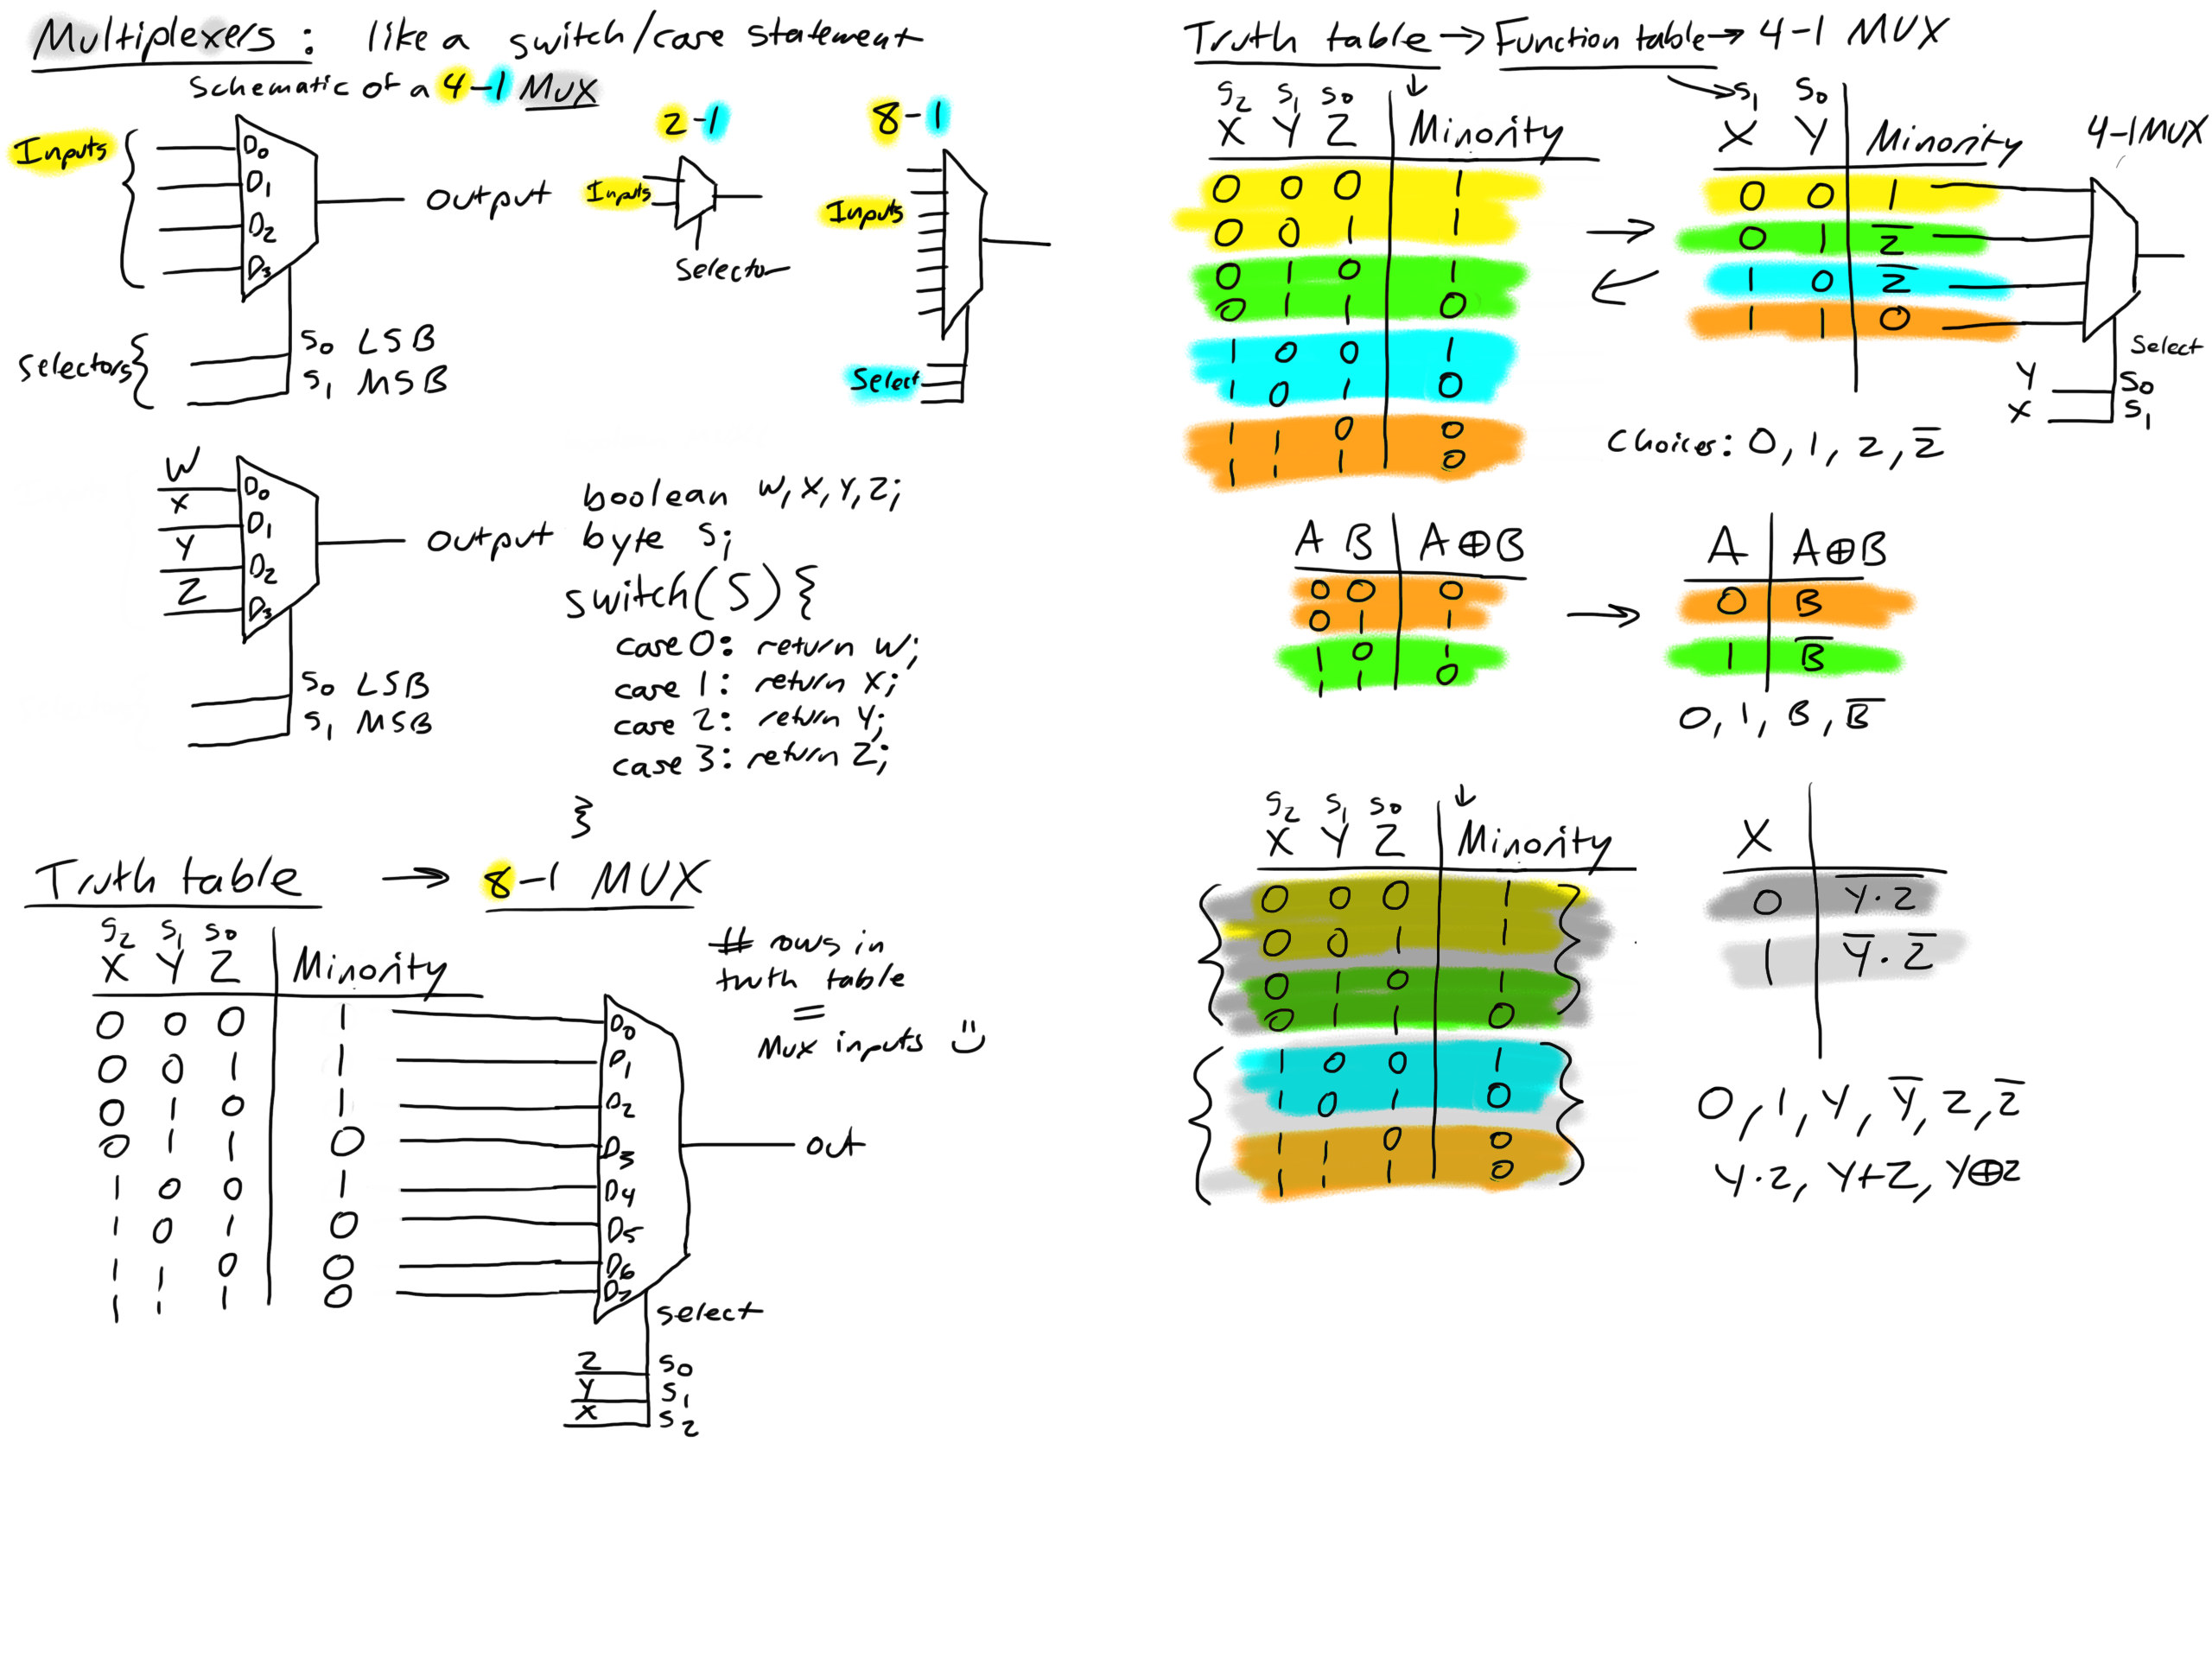 Multiplexers: like a switch/case statement
Schematic of a 4-1 MUX
Inputs
D0
D1
D2
D3
output
Selectors
S0 LSB
S1 MSB
2-1
Inputs
Selector
8-1
Inputs
Select
W
X
Y
Z
D0
D1
D2
D3
output
S0 LSB
S1 MSB
boolean W, X, Y, Z;
byte S;
switch(S){
case 0: return W;
case 1: return X;
case 2: return Y;
case 3: return Z;
}
Truth table → 8-1 MUX
S2 S1 S0
X Y Z Minority
0 0 0 1
0 0 1 1
0 1 0 1
0 1 1 0
1 0 0 1
1 0 1 0
1 1 0 0
1 1 1 0
D0
D1
D2
D3
D4
D5
D6
D7
out
select
Z S0
Y S1
X S2
# rows in
truth table
=
Mux inputs
Truth table → Function table → 4-1 MUX
S2 S1 S0 ↓
X Y Z Minority
0 0 0 1
0 0 1 1
0 1 0 1
0 1 1 0
1 0 0 1
1 0 1 0
1 1 0 0
1 1 1 0
→
←
→ S1 S0
X Y Minority
0 0 1
0 1 Z̅
1 0 Z̅
1 1 0
4-1 MUX
Select
Y S0
X S1
Choices: 0, 1, Z, Z̅
A B A⊕B
0 0 0
0 1 1
1 0 1
1 1 0
→
A A⊕B
0 B
1 B̅
0, 1, B, B̅
S2 S1 S0 ↓
X Y Z Minority
0 0 0 1
0 0 1 1
0 1 0 1
0 1 1 0
1 0 0 1
1 0 1 0
1 1 0 0
1 1 1 0
X
0 Y̅·̅Z̅
1 Y̅·Z̅
0, 1, Y, Y̅, Z, Z̅
Y·Z, Y+Z, Y⊕Z